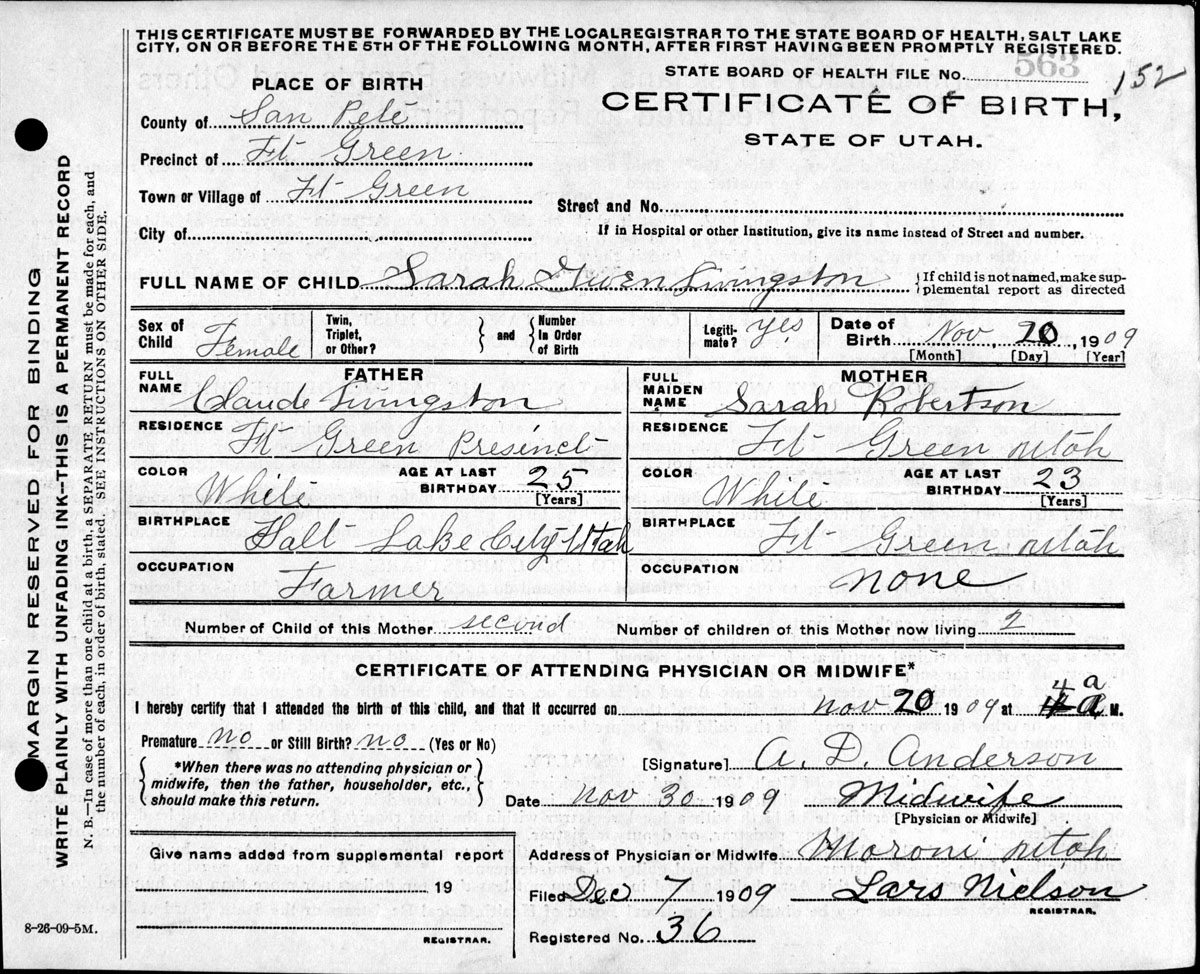 THIS CERTIFICATE MUST BE FORWARDED BY THE LOCAL REGISTRAR TO THE STATE BOARD OF HEALTH, SALT LAKE
CITY, ON OR BEFORE THE 5TH OF THE FOLLOWING MONTH, AFTER FIRST HAVING BEEN PROMPTLY REGISTERED.
STATE BOARD OF HEALTH FILE No. 563 152
PLACE OF BIRTH
CERTIFICATE OF BIRTH,
STATE OF UTAH.
County of San Pete
Precinct of Ft Green
Town or Village of Ft Green
Street and No.
City of
If in Hospital or other Institution, give its name instead of Street and number.
FULL NAME OF CHILD Sarah Gwen Livingston {If child is not named, make sup-
plemental report as directed
Sex of Child Female Twin, Triplet, or Other? } and { Number In Order of Birth Legiti-mate? yes Date of Birth Nov 20, 1909
[Month] [Day] [Year]
FATHER
FULL NAME Claude Livingston
RESIDENCE Ft Green Presinct
COLOR White AGE AT LAST BIRTHDAY 25
[Years]
BIRTHPLACE Salt Lake City Utah
OCCUPATION Farmer
MOTHER
FULL MAIDEN NAME Sarah Robertson
RESIDENCE Ft Green utah
COLOR White AGE AT LAST BIRTHDAY 23
[Years]
BIRTHPLACE Ft Green, utah
OCCUPATION none
Number of Child of this Mother second Number of children of this Mother now living 2
CERTIFICATE OF ATTENDING PHYSICIAN OR MIDWIFE*
I hereby certify that I attended the birth of this child, and that it occurred on nov 20 1909 at 4 a M.
Premature no or Still Birth? no (Yes or No)
*When there was no attending physician or
midwife, then the father, householder, etc.,
should make this return.
[Signature] A. D. Anderson
Date nov 30 1909 Midwife
[Physician or Midwife]
Give name added from supplemental report
19
REGISTRAR.
Address of Physician or Midwife Moroni utah
Filed Dec 7 1909 Lars Nielson
REGISTRAR.
Registered No. 36
8-26-09-5M.
MARGIN RESERVED FOR BINDING
WRITE PLAINLY WITH UNFADING INK—THIS IS A PERMANENT RECORD
N. B.—In case of more than one child at a birth, a SEPARATE RETURN must be made for each, and
the number of each, in order of birth, stated. SEE INSTRUCTIONS ON OTHER SIDE.